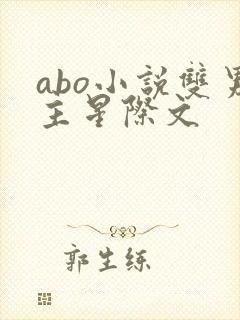 abo小説雙男
主星際文
郭生练